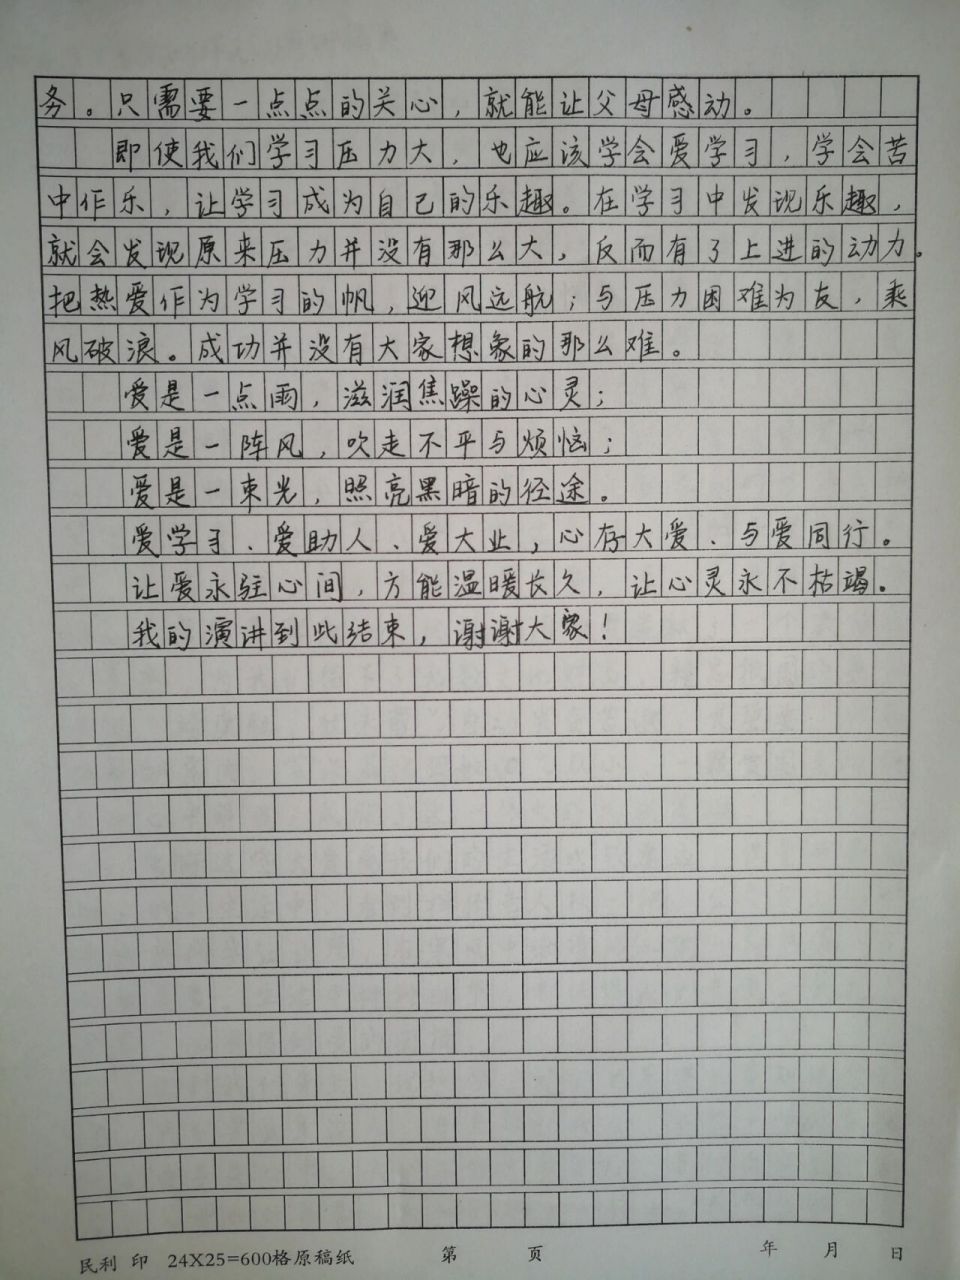 务。只需要一点点的关心，就能让父母感动。
即使我们学习压力大，也应该学会爱学习，学会苦
中作乐，让学习成为自己的乐趣。在学习中发现乐趣，
就会发现原来压力并没有那么大，反而有了上进的动力。
把热爱作为学习的帆，迎风远航；与压力困难为友，乘
风破浪。成功并没有大家想象的那么难。
爱是一点雨，滋润焦躁的心灵；
爱是一阵风，吹走不平与烦恼；
爱是一束光，照亮黑暗的径途。
爱学习、爱助人、爱大业，心存大爱、与爱同行。
让爱永驻心间，方能温暖长久，让心灵永不枯竭。
我的演讲到此结束，谢谢大家！
民利 印 24X25=600格原稿纸 第 页 年 月 日